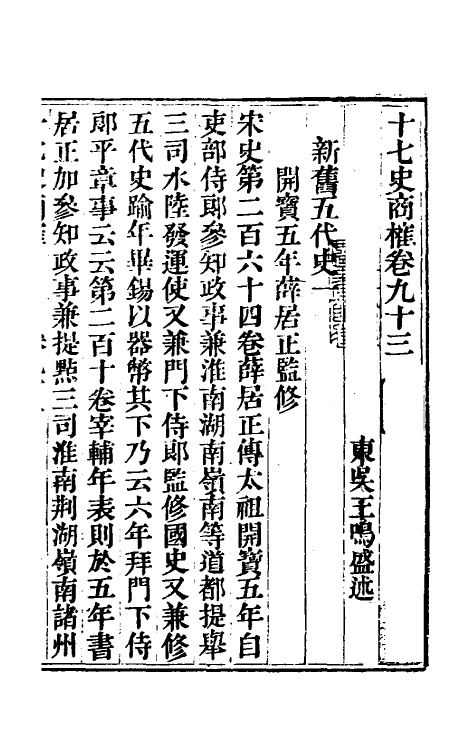 十七史商榷卷九十三
東吳王鳴盛述
新舊五代史一
開寶五年薛居正監修
宋史第二百六十四卷薛居正傳太祖開寶五年自
吏部侍郎參知政事兼淮南湖南嶺南等道都提舉
三司水陸發運使又兼門下侍郎監修國史又兼修
五代史踰年畢錫以器幣其下乃云六年拜門下侍
郎平章事云云第二百十卷宰輔年表則於五年書
居正加參知政事兼提㸃三司淮南荆湖嶺南諸州